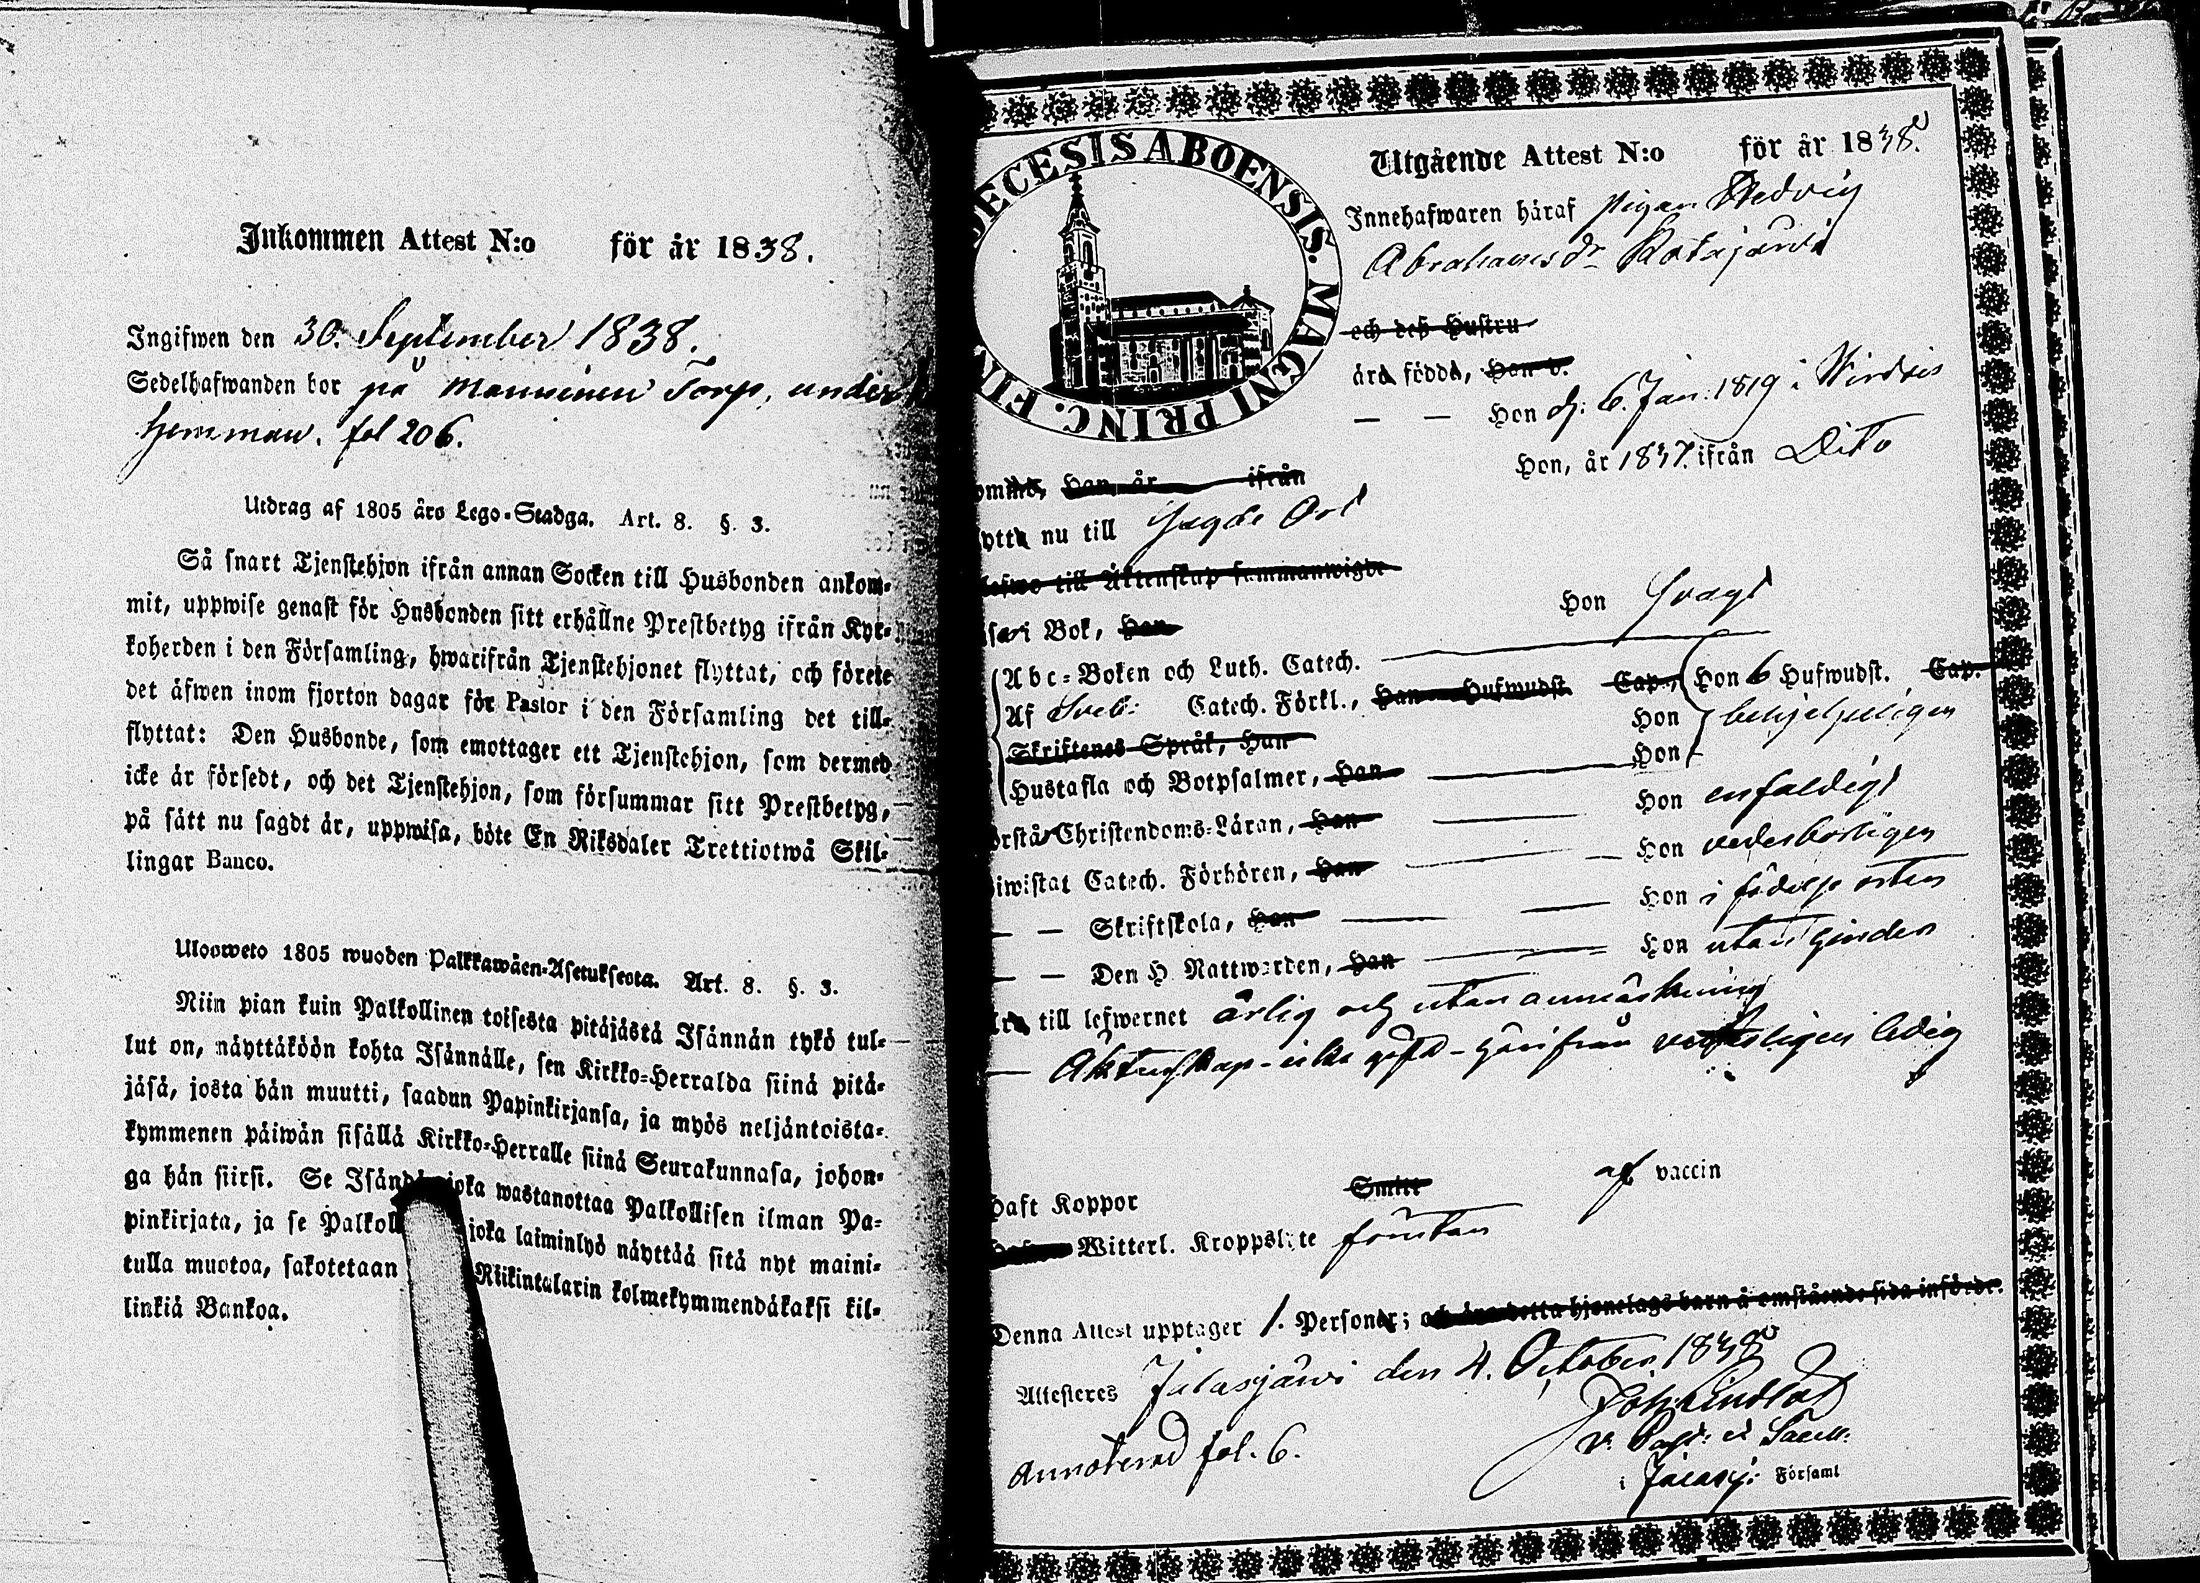 Inkommen Attest N:o för år 1838.
Ingifwen den 30. September 1838.
Sedelhafwanden bor på Manninen Torp, under
Hemman. fol 206.
Utdrag af 1805 års Lego-Stadga. Art. 8. §. 3.
Så snart Tjenstehjon ifrån annan Socken till Husbonden ankom-
mit, uppwise genast för Husbonden sitt erhållne Prestbetyg ifrån Kyr-
koherden i den Församling, hwarifrån Tjenstehjonet flyttat, och förete
det äfwen inom fjorton dagar för Pastor i den Församling det till-
flyttat: Den Husbonde, som emottager ett Tjenstehjon, som dermed
icke är försedt, och det Tjenstehjon, som försummar sitt Prestbetyg,
på sätt nu sagdt är, uppwisa, böte En Riksdaler Trettiotwå Skil-
lingar Banco.
Uloosweto 1805 wuoden Palkkawäen-Asetuksesta. Art. 8. §. 3.
Niin pian kuin Palkollinen toisesta pitäjästä Isännän tykö tul-
lut on, näyttäköön kohta Isännälle, sen Kirkko-Herralda siinä pitä-
jäsä, josta hän muutti, saadun Papinkirjansa, ja myös neljäntoista-
kymmenen päiwän sisällä Kirkko-Herralle siinä Seurakunnasa, johon-
ga hän siirsi. Se joka wastanottaa Palkollisen ilman Pa-
pinkirjata, ja se joka laiminlyö näyttää sitä nyt maini-
tulla muotoa, sakotetaan Riikintalarin kolmekymmendäkaksi kil-
linkiä Bankoa.
ECESIS ABOENSIS. MAGNI PRINC. FIN
Utgående Attest N:o för år 1838.
Innehafwaren häraf pigan Hedvig
Abrahamsdr Katajavi
och deß Hustru
ära födda, Han d.
— — Hon d. 6. Jan. 1819 i Wirdois
Han, år ifrån Hon, år 1837. ifrån Dito
nu till Sagde Ort
till Äktenskap sammanwigde
i Bok, Han Hon Svagt
Abc-Boken och Luth. Catech.
Af Sveb: Catech. Förkl., Han Hufwudst. Cap., Hon 6 Hufwudst. Cap.
Skriftenes Språk, Han Hon behjelpeligen
Hustafla och Botpsalmer, Han Hon
Christendoms-Läran, Han Hon enfaldigt
Catech. Förhören, Han Hon vederbörligen
— — Skriftskola, Han Hon i födelse orten
— — Den H. Nattwarden, Han Hon utan hinder
till lefwernet ärlig och utan anmärkning
— Äktenskap icke härifrån ledig
haft Koppor Smitt af vaccin
Witterl. Kroppslyte förutan
Denna Attest upptager 1. Personer; och äro detta hjonelags barn å omstående sida införde.
Attesteras Jalasjärvi den 4. October 1838
Annoterad fol. 6.
i Jalasj. Församl